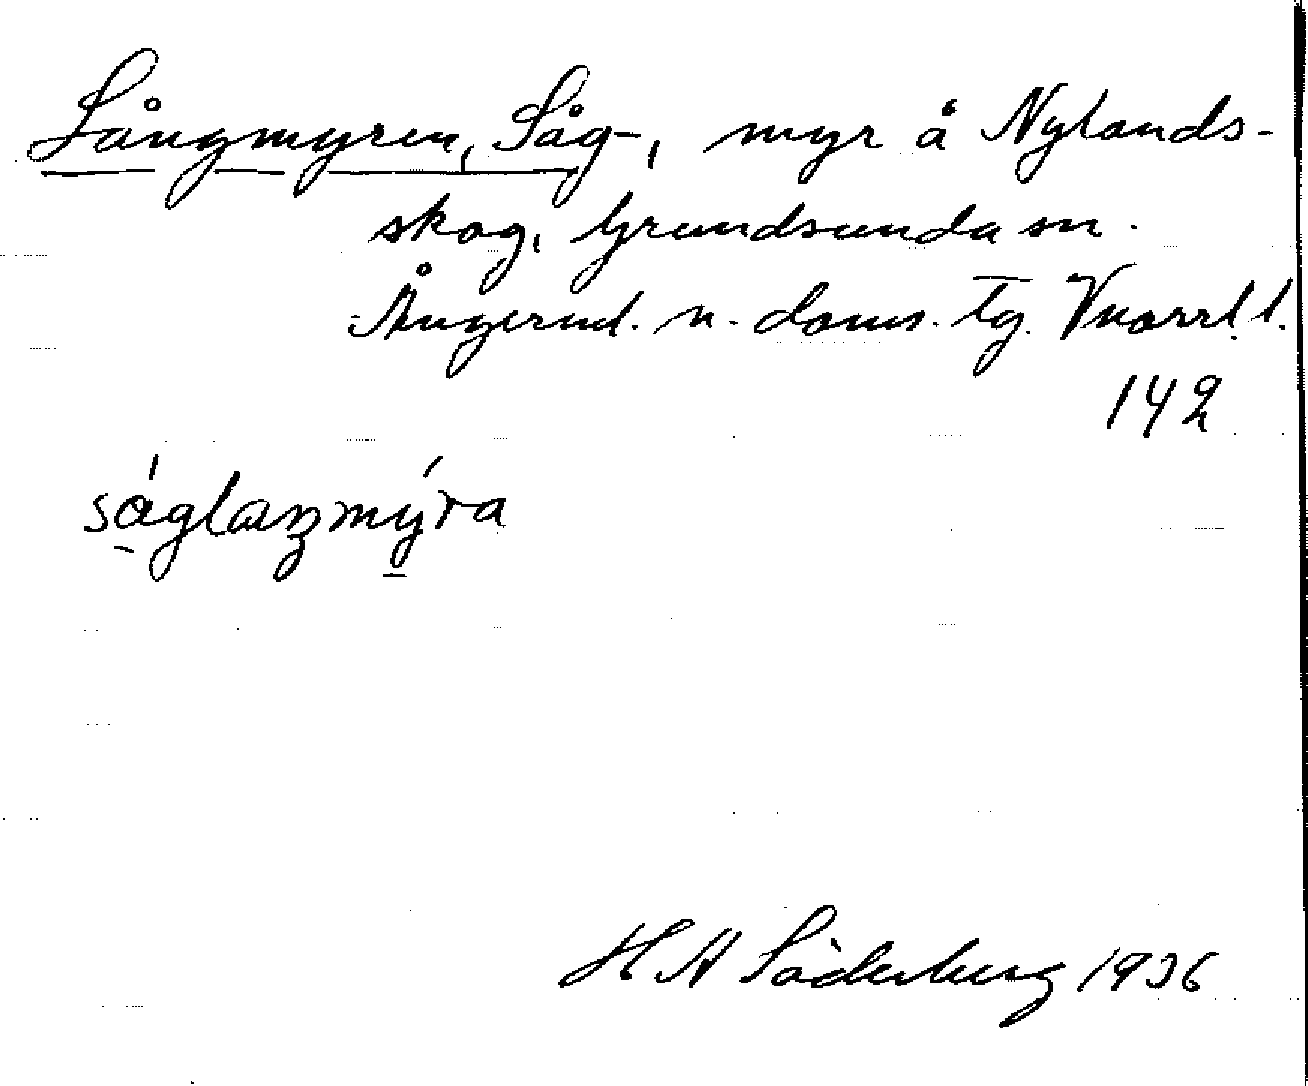 Långmyren, Såg-, myr å Nylands-
skog, Grundsunda sn.
Ångermd. n. doms. tg. Vnorrl. l.
142
ságlaŋmýra
H A Söderberg 1936